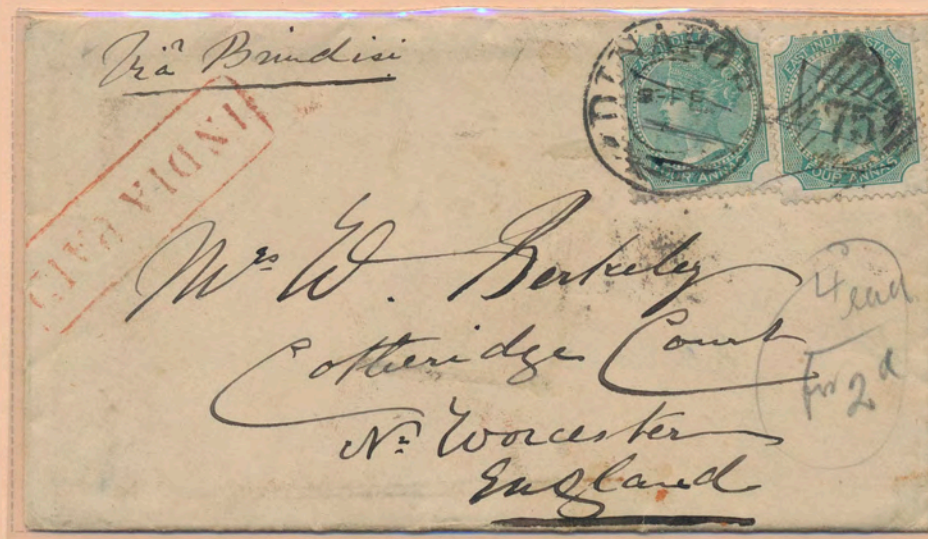 Viâ Brindisi
INDIA PAID
DINAPOR
FOUR ANNAS
EAST INDIA POSTAGE
75
FOUR ANNAS
Mrs W. Berkeley
Cotheridge Court
Nr Worcester
England
4 each
for 2d